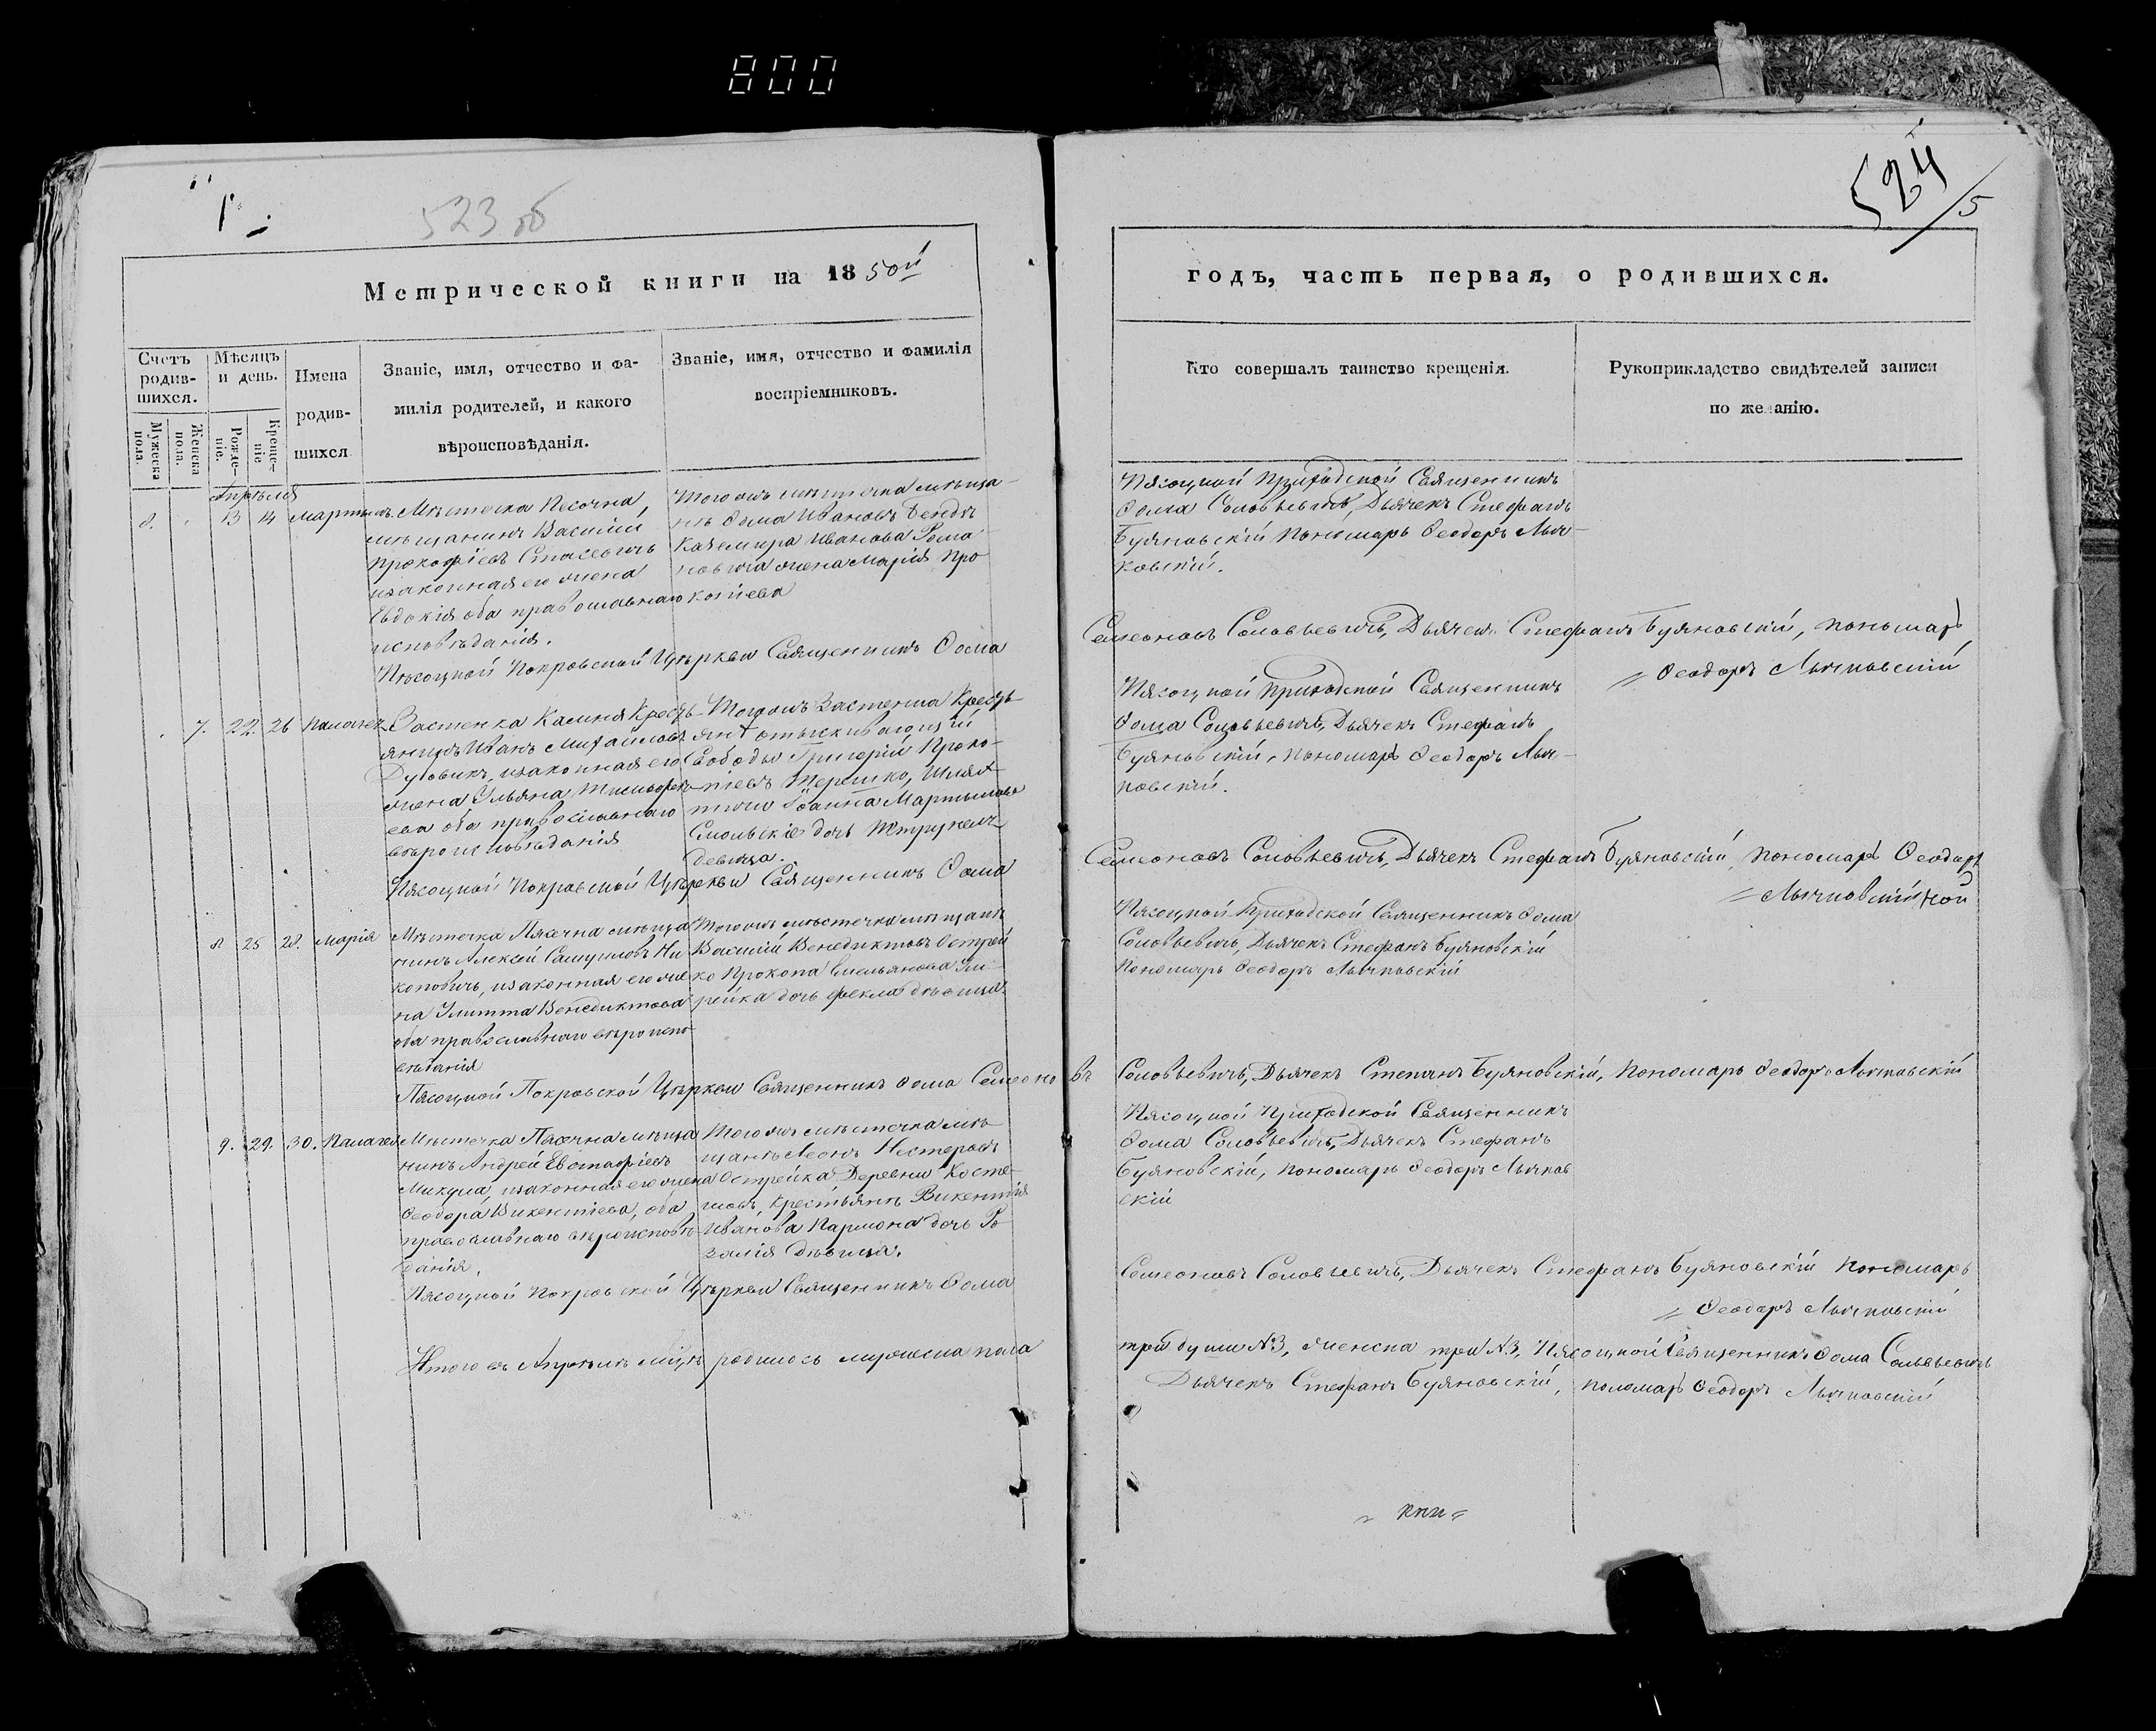 800
523 об
524
5
Метрической книги на 1850й
годъ, часть первая, о родившихся.
Счетъ родившихся.
Мѣсяцъ и день.
Имена родившихся
Званіе, имя, отчество и фа-
милія родителей, и какого
вѣроисповѣданія.
Званіе, имя, отчество и фамилія
воспріемниковъ.
Кто совершалъ таинство крещенія.
Рукоприкладство свидѣтелей записи
по желанію.
Мужеска пола.
Женска пола.
Рожде-
ніе.
Креще-
ніе
Апрѣля
8. 13 14 Мартинъ
Мѣстечка Песочна,
мѣщанинъ Василій
Прокофіевъ Стасевичъ
изаконная его жена
Евдокія оба православнаго
исповѣданія.
Тогожъ мѣстечка мѣща-
нъ Фома Ивановъ
Каземира Иванова Рома-
новича жена Марія Про-
копіева
Пясоцкой Приходской Священникъ
Фома Соловьевичъ, Дьячекъ Стефанъ
Буяновскій Пономарь Феодоръ Лыч-
ковскій.
Пясоцкой Покровской Церкви Священникъ Фома
Семеоновъ Соловьевичъ, Дьячекъ Стефанъ Буяновскій, пономарь
Феодоръ Лычковскій
7. 22. 26 Палагея
Застенка Калиня Кресть-
янинъ Иванъ Михайловъ
Дуговикъ, изаконная его
жена Ульяна Тимофе-
ева оба православнаго
вѣроисповѣданія
Тогожъ Застенка Кресть-
янъ отыскивающій
Свободы Григорій Проко-
піевъ Терешко, Шлях-
тича Іоанна Мартынова
Смольскіе дочь
девица.
Пясоцкой Приходской Священникъ
Фома Соловьевичъ, Дьячекъ Стефанъ
Буяновскій, пономарь Феодоръ Лыч-
ковскій.
Пясоцкой Покровской Церкви Священникъ Фома
Семеоновъ Соловьевичъ, Дьячекъ Стефанъ Буяновскій, пономарь Феодоръ
Лычковскій
8 25 28. Марія
Мѣстечка Пясечна мѣща-
нинъ Алексѣй Самуиловъ Ни-
коновичъ, изаконная его же-
на Улитта Венедиктова
оба православнаго вѣроиспо-
вѣданія
Тогожъ мѣстечка мѣщанъ
Василій Венедиктовъ Острей-
ко Прокопа Емельянова
дочь Фекла дѣвица.
Пясоцкой Приходской Священникъ Фома
Соловьевичъ, Дьячекъ Стефанъ Буяновскій
Пономарь Феодоръ Лычковскій
Пясоцкой Покровской Церкви Священникъ Фома Семеоновъ
Соловьевичъ, Дьячекъ Степанъ Буяновскій, Пономарь Феодоръ Лычковскій
9. 29. 30. Палагея
Мѣстечка Пясечна мѣща-
нинъ Андрей Евстафіевъ
Микула, изаконная его жена
Феодора Викентіева, оба
православнаго вѣроисповѣ-
данія.
Тогожъ мѣстечка мѣ-
щанъ Леонъ Нестеровъ
Острейка, Деревни Косте-
шовъ, крестьянъ Викентія
Иванова Пармона дочь Ро-
залія дѣвица.
Пясоцкой Приходской Священникъ
Фома Соловьевичъ, Дьячекъ Стефанъ
Буяновскій, пономарь Феодоръ Лычков-
скій
Пясоцкой Покровской Церкви Священникъ Фома
Семеоновъ Соловьевичъ, Дьячекъ Стефанъ Буяновскій Пономарь
Феодоръ Лычковскій
Итого въ Апрѣлѣ мѣцѣ родилось мужеска пола
три души №3, женска три №3, Пясоцкой Священникъ Фома Соловьевичъ
Дьячекъ Стефанъ Буяновскій, пономарь Феодоръ Лычковскій
кни